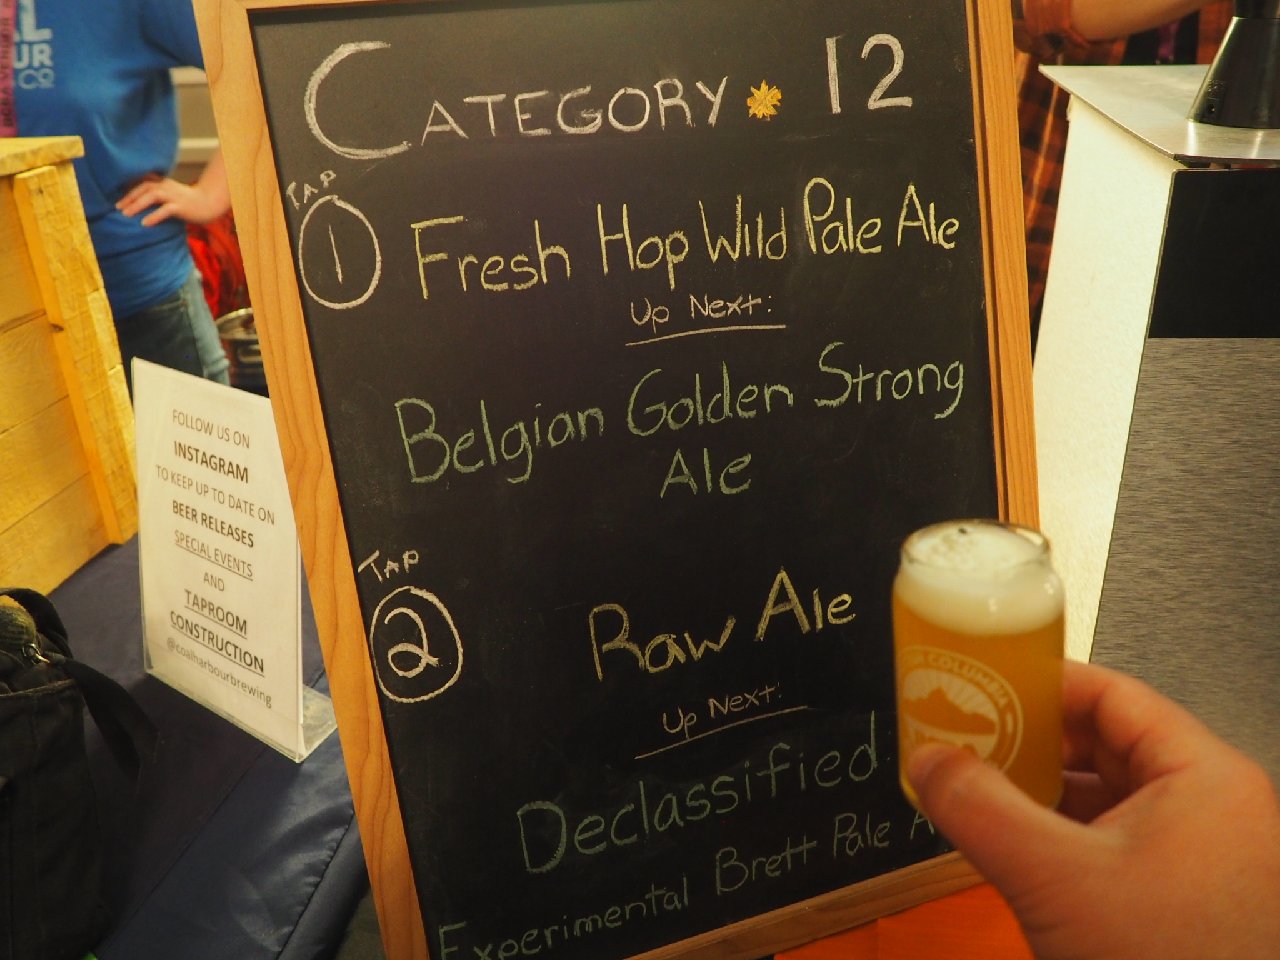 CATEGORY 12
TAP
1
Fresh Hop Wild Pale Ale
Up Next:
Belgian Golden Strong
Ale
TAP
2
Raw Ale
Up Next:
Declassified
Experimental Brett Pale A
FOLLOW US ON
INSTAGRAM
TO KEEP UP TO DATE ON
BEER RELEASES
SPECIAL EVENTS
AND
TAPROOM
CONSTRUCTION
@coalharbourbrewing
COLUMBIA
UR
CO